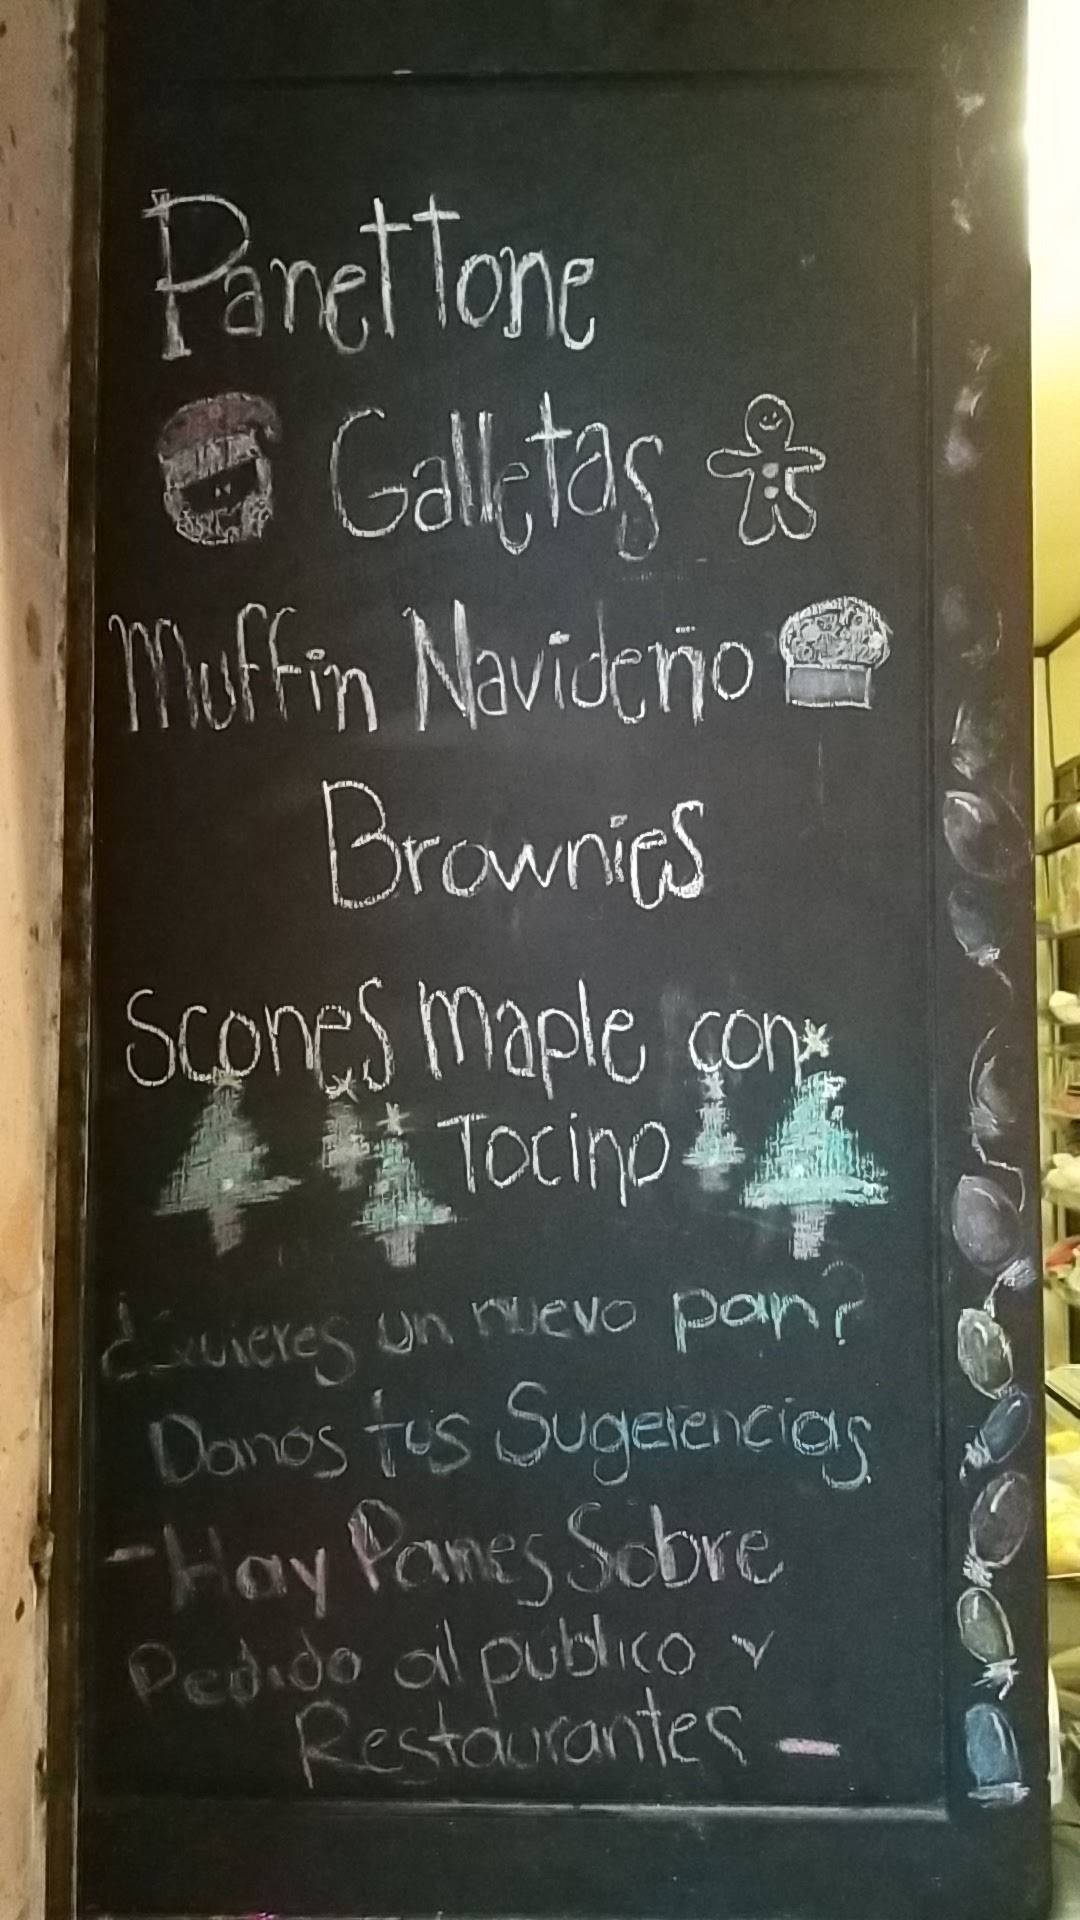 Panettone
Galletas
Muffin Navideño
Brownies
Scones maple con
Tocino
¿Quieres un nuevo pan?
Danos tus Sugerencias
- Hay Panes Sobre
Pedido al público y
Restaurantes -